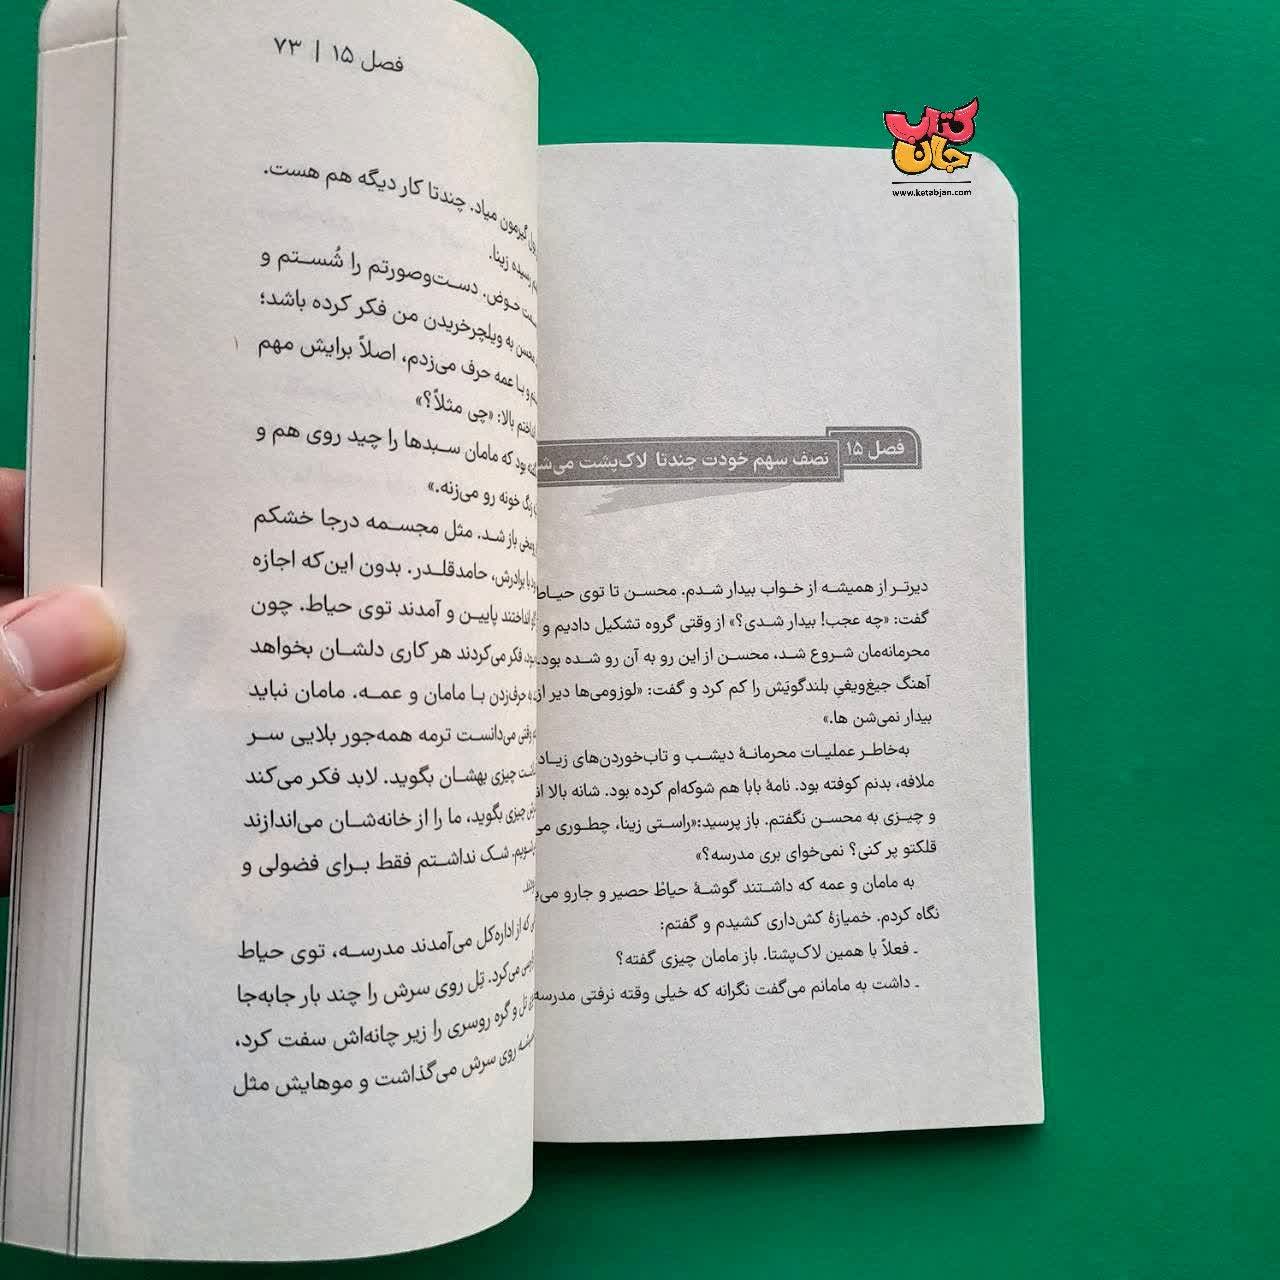 کتاب جان
www.ketabjan.com
فصل ۱۵
نصف سهم خودت چندتا لاک‌پشت
دیرتر از همیشه از خواب بیدار شدم. محسن تا توی حیاط
گفت: «چه عجب! بیدار شدی؟» از وقتی گروه تشکیل دادیم و
محرمانه‌مان شروع شد، محسن از این رو به آن رو شده بود.
آهنگ جیغ‌ویغیِ بلندگویَش را کم کرد و گفت: «لوزومی‌ها دیر از
بیدار نمی‌شن ها.»
به‌خاطر عملیات محرمانهٔ دیشب و تاب‌خوردن‌های زیاد
ملافه، بدنم کوفته بود. نامهٔ بابا هم شوکه‌ام کرده بود. شانه بالا
و چیزی به محسن نگفتم. باز پرسید:«راستی زینا، چطوری
قلکتو پر کنی؟ نمی‌خوای بری مدرسه؟»
به مامان و عمه که داشتند گوشهٔ حیاطْ حصیر و جارو
نگاه کردم. خمیازهٔ کش‌داری کشیدم و گفتم:
ـ فعلاً با همین لاک‌پشتا. باز مامان چیزی گفته؟
ـ داشت به مامانم می‌گفت نگرانه که خیلی وقته نرفتی مدرسه
فصل ۱۵ | ۷۳
گیرمون میاد. چندتا کار دیگه هم هست.
رسیده زینا.
حوض. دست‌وصورتم را شُستم و
محسن به ویلچرخریدن من فکر کرده باشد؛
و با عمه حرف می‌زدم، اصلاً برایش مهم
بالا: «چی مثلاً؟»
بود که مامان سبدها را چید روی هم و
زنگ خونه رو می‌زنه.»
باز شد. مثل مجسمه درجا خشکم
با برادرش، حامدقلدر. بدون این‌که اجازه
انداختند پایین و آمدند توی حیاط. چون
فکر می‌کردند هر کاری دلشان بخواهد
به حرف‌زدن با مامان و عمه. مامان نباید
وقتی می‌دانست ترمه همه‌جور بلایی سر
چیزی بهشان بگوید. لابد فکر می‌کند
چیزی بگوید، ما را از خانه‌شان می‌اندازند
شک نداشتم فقط برای فضولی و
که از اداره‌کل می‌آمدند مدرسه، توی حیاط
می‌کرد. تِل روی سرش را چند بار جابه‌جا
تل و گره روسری را زیر چانه‌اش سفت کرد،
روی سرش می‌گذاشت و موهایش مثل